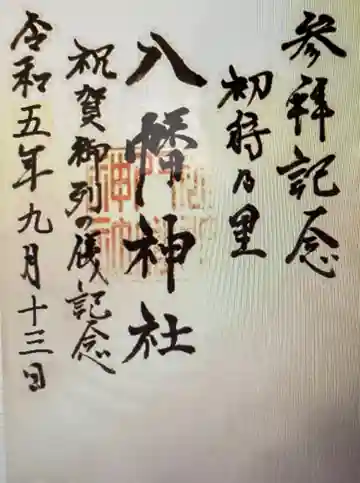 参拝記念
初狩乃里
八幡神社
祝賀御列の儀記念
令和五年九月十三日